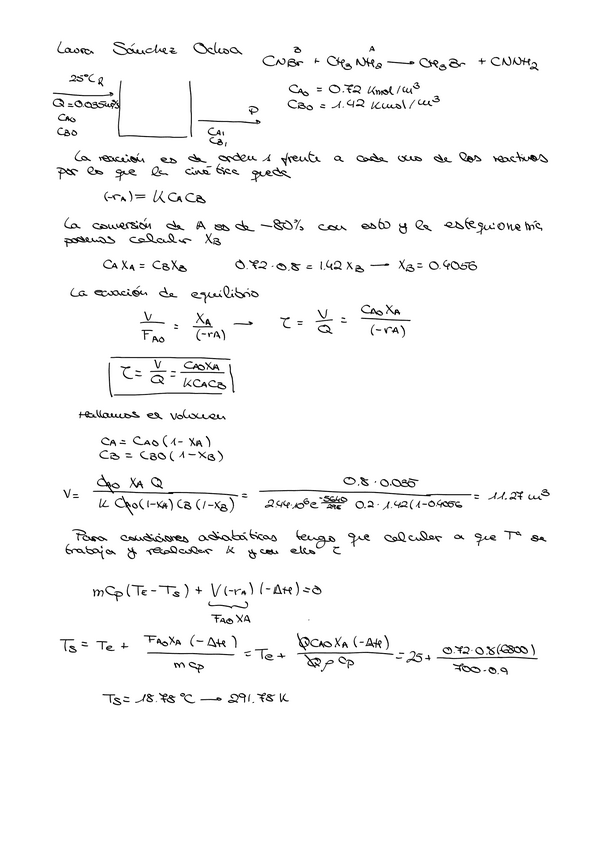 Laura Sánchez Ochoa
B A
CNBr + CH3NH2 → CH3Br + CNNH2
25°C R
Q=0.035 m³/s
CAO
CBO
P
CA1
CB1
CAO = 0.72 Kmol/m³
CBO = 1.42 Kmol/m³
La reacción es de orden 1 frente a cada uno de los reactivos
por lo que la cinética queda
(-rA) = K CA CB
La conversión de A es de -80% con esto y la estequiometría
podemos calcular XB
CA XA = CB XB 0.72·0.8 = 1.42 XB → XB = 0.4056
La ecuación de equilibrio
V/FAO = XA/(-rA) → τ = V/Q = CAO XA/(-rA)
τ = V/Q = CAO XA/K CA CB
Hallamos el volumen
CA = CAO (1-XA)
CB = CBO (1-XB)
V = CAO XA Q / K CAO (1-XA) CB (1-XB) = 0.8·0.035 / 0.2·1.42(1-0.4056 = 11.27 m³
Para condiciones adiabáticas tengo que calcular a que Tª se
trabaja y recalcular K y con ello τ
mCp (TE-TS) + V(-rA)(-ΔH) = 0
FAO XA
TS = Te + FAO XA (-ΔH) / m Cp = Te + Q CAO XA (-ΔH) / Q ρ Cp = 25 + 0.72·0.8(6800) / 700·0.9
TS = 18.78 °C → 291.78 K